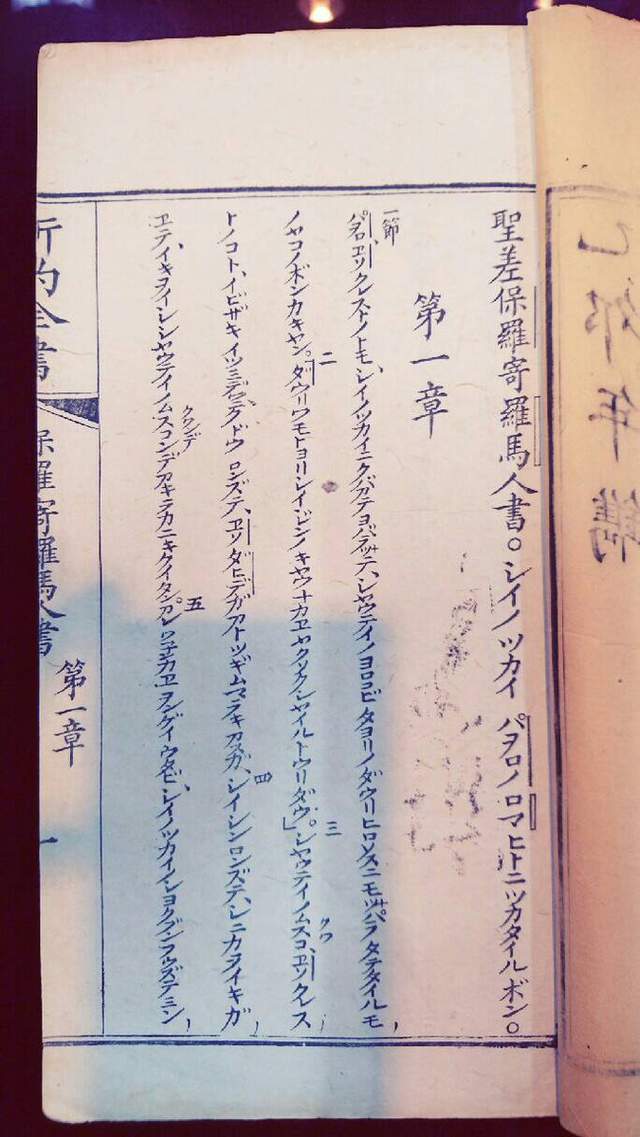 乙卯年鐫
聖差保羅寄羅馬人書。シイノツカイ パヲロノロマヒトニツカタイルボン。
第一章
一節
パヲロ、ヱソクレストノトモ、シイノツカイニクバアテヨバアツサテ、シヤウテイノヨロコビタヨリノダウリヒロンスニモツサパラノタテタイルモ
ノヤコノボンカキヤン。二ダウリワモトヨリシイジンノキヤウナカヱヤクソクシヤイルトウリダウ。三シヤウテイノムスコ、ヱソクレス
トノコト、イビザキイツミデニクドウロンズテ、ヱソダヒデガアトツギムマラキアスガ、四シイシンロンズテ、シニカヲイキガ
ヱテ、イキヲイシシヤウテイノムスコンデアキラカニキクイタン。五アレワヲナカヱヲンゲイウタビ、シイノツカイノシヨクブンフウズテミン
新約全書 保羅寄羅馬人書 第一章 一